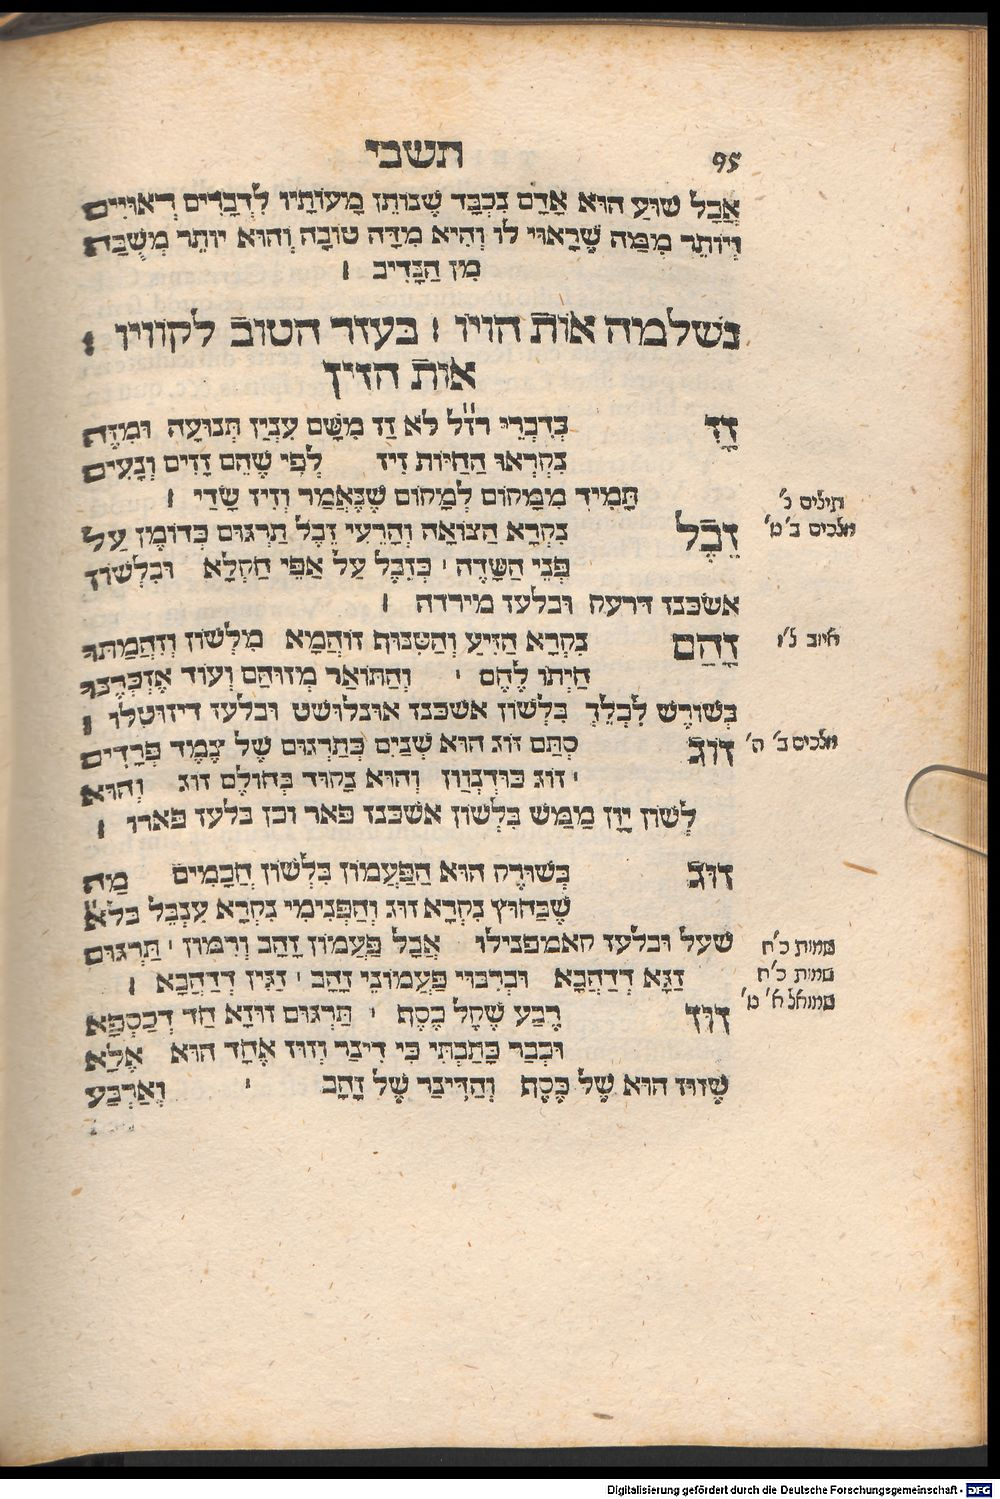 תשבי
95
אֲבָל שׁוּעַ הוּא אָדָם נִכְבָּד שֶׁנּוֹתֵן מָעוֹתָיו לִדְבָרִים רְאוּיִים
וְיוֹתֵר מִמַּה שֶׁרָאוּי לוֹ וְהִיא מִדָּה טוֹבָה וְהוּא יוֹתֵר מְשֻׁבָּח
מִן הַנָּדִיב ׃
נשלמה אות הויו ׃ בעזר הטוב לקוויו ׃
אות הזיין
זָז בְּדִבְרֵי רז״ל לֹא זָז מִשָּׁם עִנְיַן תְּנוּעָה וּמִזֶּה
נִקְרְאוּ הַחַיּוֹת זִיז לְפִי שֶׁהֵם זָזִים וְנָעִים
תָּמִיד מִמָּקוֹם לְמָקוֹם שֶׁנֶּאֱמַר וְזִיז שָׂדַי ׃
תילים נ׳
מלכים ב׳ ט׳
זֶבֶל נִקְרָא הַצּוֹאָה וְהָרְעִי זֶבֶל תַּרְגּוּם כְּדוֹמֶן עַל
פְּנֵי הַשָּׂדֶה ׳ כְּזֶבֶל עַל אַפֵּי חַקְלָא וּבִלְשׁוֹן
אשכנז דרעק ובלעז מירדה ׃
איוב ל״ג
זָהַם נִקְרָא הַזֵּיעַ וְהַטִּנּוּף זוֹהֲמָא מִלְּשׁוֹן וְזִהֲמַתּוּ
חַיָּתוֹ לֶחֶם ׳ וְהַתּוֹאַר מְזוֹהָם וְעוֹד אֶזְכְּרֶנּוּ
בְּשׁוֹרֶשׁ לִכְלֵךְ בִּלְשׁוֹן אשכנז אונלושט ובלעז דיזוטילו ׃
מלכים ב׳ ה׳
זוֹג סְתַּם זוֹג הוּא שְׁנַיִם כְּתַרְגּוּם שֶׁל צֶמֶד פְּרָדִים
׳ זוֹג כּוּדְנְוָון וְהוּא נָקוּד בְּחוֹלֶם זוֹג וְהוּא
לְשׁוֹן יָוָן מַמַּשׁ בִּלְשׁוֹן אשכנז פאר וכן בלעז פארו ׃
זוּג בְּשׁוּרֶק הוּא הַפַּעֲמוֹן בִּלְשׁוֹן חֲכָמִים מַה
שֶּׁבַּחוּץ נִקְרָא זוּג וְהַפְּנִימִי נִקְרָא עִנְבָּל בל״א
שעל ובלעז קאמפנילו אֲבָל פַּעֲמוֹן זָהָב וְרִמּוֹן ׳ תַּרְגּוּם
שמות כ״ח
זַגָּא דְדַהֲבָא וּבְרִבּוּי פַּעֲמוֹנֵי זָהָב ׳ זַגִּין דְדַהֲבָא ׃
שמות כ״ח
שמואל א׳ ט׳
זוּז רֶבַע שֶׁקֶל כֶּסֶף ׳ תַּרְגּוּם זוּזָא חַד דְכַסְפָּא
וּכְבַר כָּתַבְתִּי כִּי דִינַר וְזוּז אֶחָד הוּא אֶלָּא
שֶׁזּוּז הוּא שֶׁל כֶּסֶף וְהַדִּינַר שֶׁל זָהָב ׳ וְאַרְבַּע
Digitalisierung gefördert durch die Deutsche Forschungsgemeinschaft - DFG